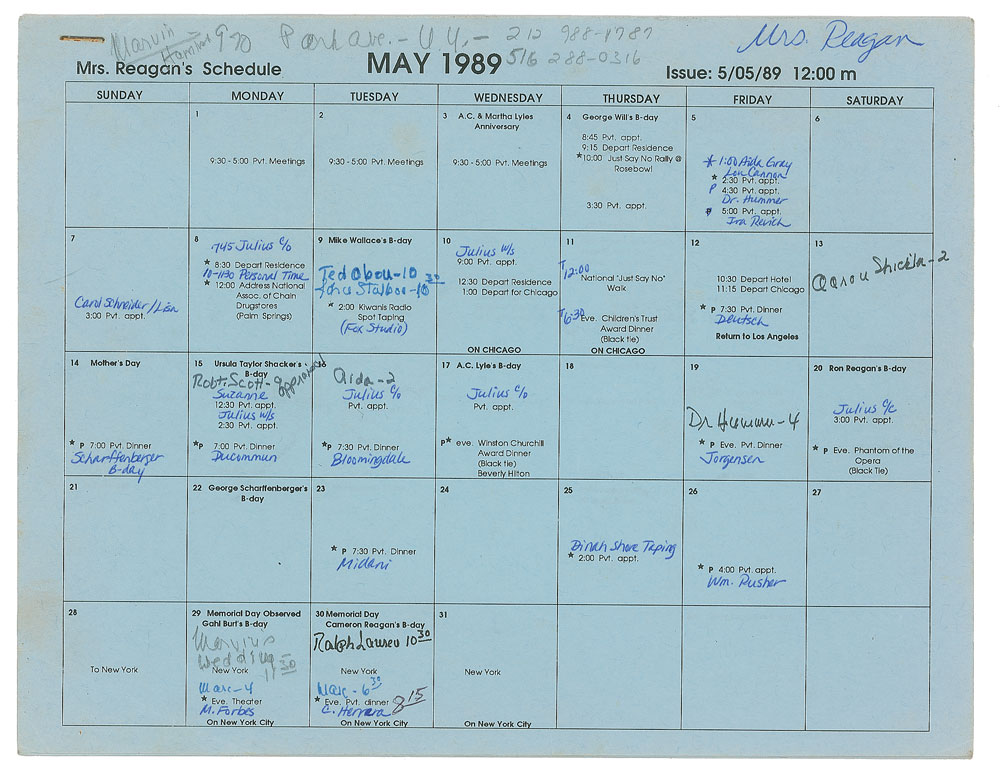 Marvin
Hamlisch 970 Park ave. - N.Y. - 212 988-8787
516 288-0316
Mrs. Reagan
Mrs. Reagan's Schedule
MAY 1989
Issue: 5/05/89 12:00 m
SUNDAY MONDAY TUESDAY WEDNESDAY THURSDAY FRIDAY SATURDAY
1
9:30 - 5:00 Pvt. Meetings
2
9:30 - 5:00 Pvt. Meetings
3 A.C. & Martha Lyles
Anniversary
9:30 - 5:00 Pvt. Meetings
4 George Will's B-day
8:45 Pvt. appt.
9:15 Depart Residence
*10:00 Just Say No Rally @
Rosebowl
3:30 Pvt. appt.
5
* 1:00 Aida Gray
Lou Cannon
* 2:30 Pvt. appt.
P 4:30 Pvt. appt.
Dr. Hummer
P 5:00 Pvt. appt.
Ira Revich
6
7
Carol Schneider/Lisa
3:00 Pvt. appt.
8
745 Julius c/o
* 8:30 Depart Residence
10-1130 Personal Time
* 12:00 Address National
Assoc. of Chain
Drugstores
(Palm Springs)
9 Mike Wallace's B-day
Ted
* 2:00 Kiwanis Radio
Spot Taping
(Fox Studio)
10
Julius w/s
9:00 Pvt. appt.
12:30 Depart Residence
1:00 Depart for Chicago
ON CHICAGO
11
T 12:00
National "Just Say No"
Walk
T 6:30
Eve. Children's Trust
Award Dinner
(Black tie)
ON CHICAGO
12
10:30 Depart Hotel
11:15 Depart Chicago
* P 7:30 Pvt. Dinner
Deutsch
Return to Los Angeles
13
Aaron Shickler - 2
14 Mother's Day
* P 7:00 Pvt. Dinner
Scharffenberger
B-day
15 Ursula Taylor Shacker's
B-day
Robt. Scott - approved
Suzanne
12:30 Pvt. appt.
Julius w/s
2:30 Pvt. appt.
*P 7:00 Pvt. Dinner
Ducommun
16
Aida - 2
Julius c/o
Pvt. appt.
*P 7:30 Pvt. Dinner
Bloomingdale
17 A.C. Lyle's B-day
Julius c/o
Pvt. appt.
P* eve. Winston Churchill
Award Dinner
(Black tie)
Beverly Hilton
18
19
Dr Hummer - 4
* P Eve. Pvt. Dinner
Jorgensen
20 Ron Reagan's B-day
Julius c/c
3:00 Pvt. appt.
* P Eve. Phantom of the
Opera
(Black Tie)
21
22 George Scharffenberger's
B-day
23
* P 7:30 Pvt. Dinner
Midani
24
25
Dinah Shore Taping
* 2:00 Pvt. appt.
26
* P 4:00 Pvt. appt.
Wm. Rusher
27
28
To New York
29 Memorial Day Observed
Gahl Burt's B-day
Marvin's
Wedding
11 30
New York
Marc - 4
* Eve. Theater
M. Forbes
On New York City
30 Memorial Day
Cameron Reagan's B-day
Ralph Lauren 10 30
New York
Marc - 6 30
* Eve. Pvt. dinner 8 15
C. Herrera
On New York City
31
New York
On New York City